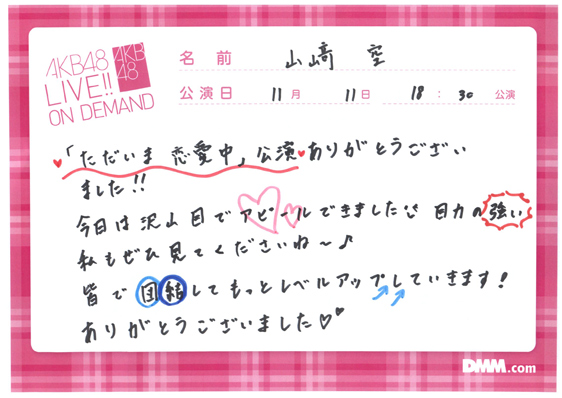 AKB48
LIVE!!
ON DEMAND
AKB
48
名前 山﨑 空
公演日 11月 11日 18:30 公演
♥「ただいま 恋愛中」公演♥ありがとうござい
ました!!
今日は沢山目でアピールできました 目力の強い
私もぜひ見てくださいね〜♪
皆で団結してもっとレベルアップしていきます!
ありがとうございました♡♥
DMM.com